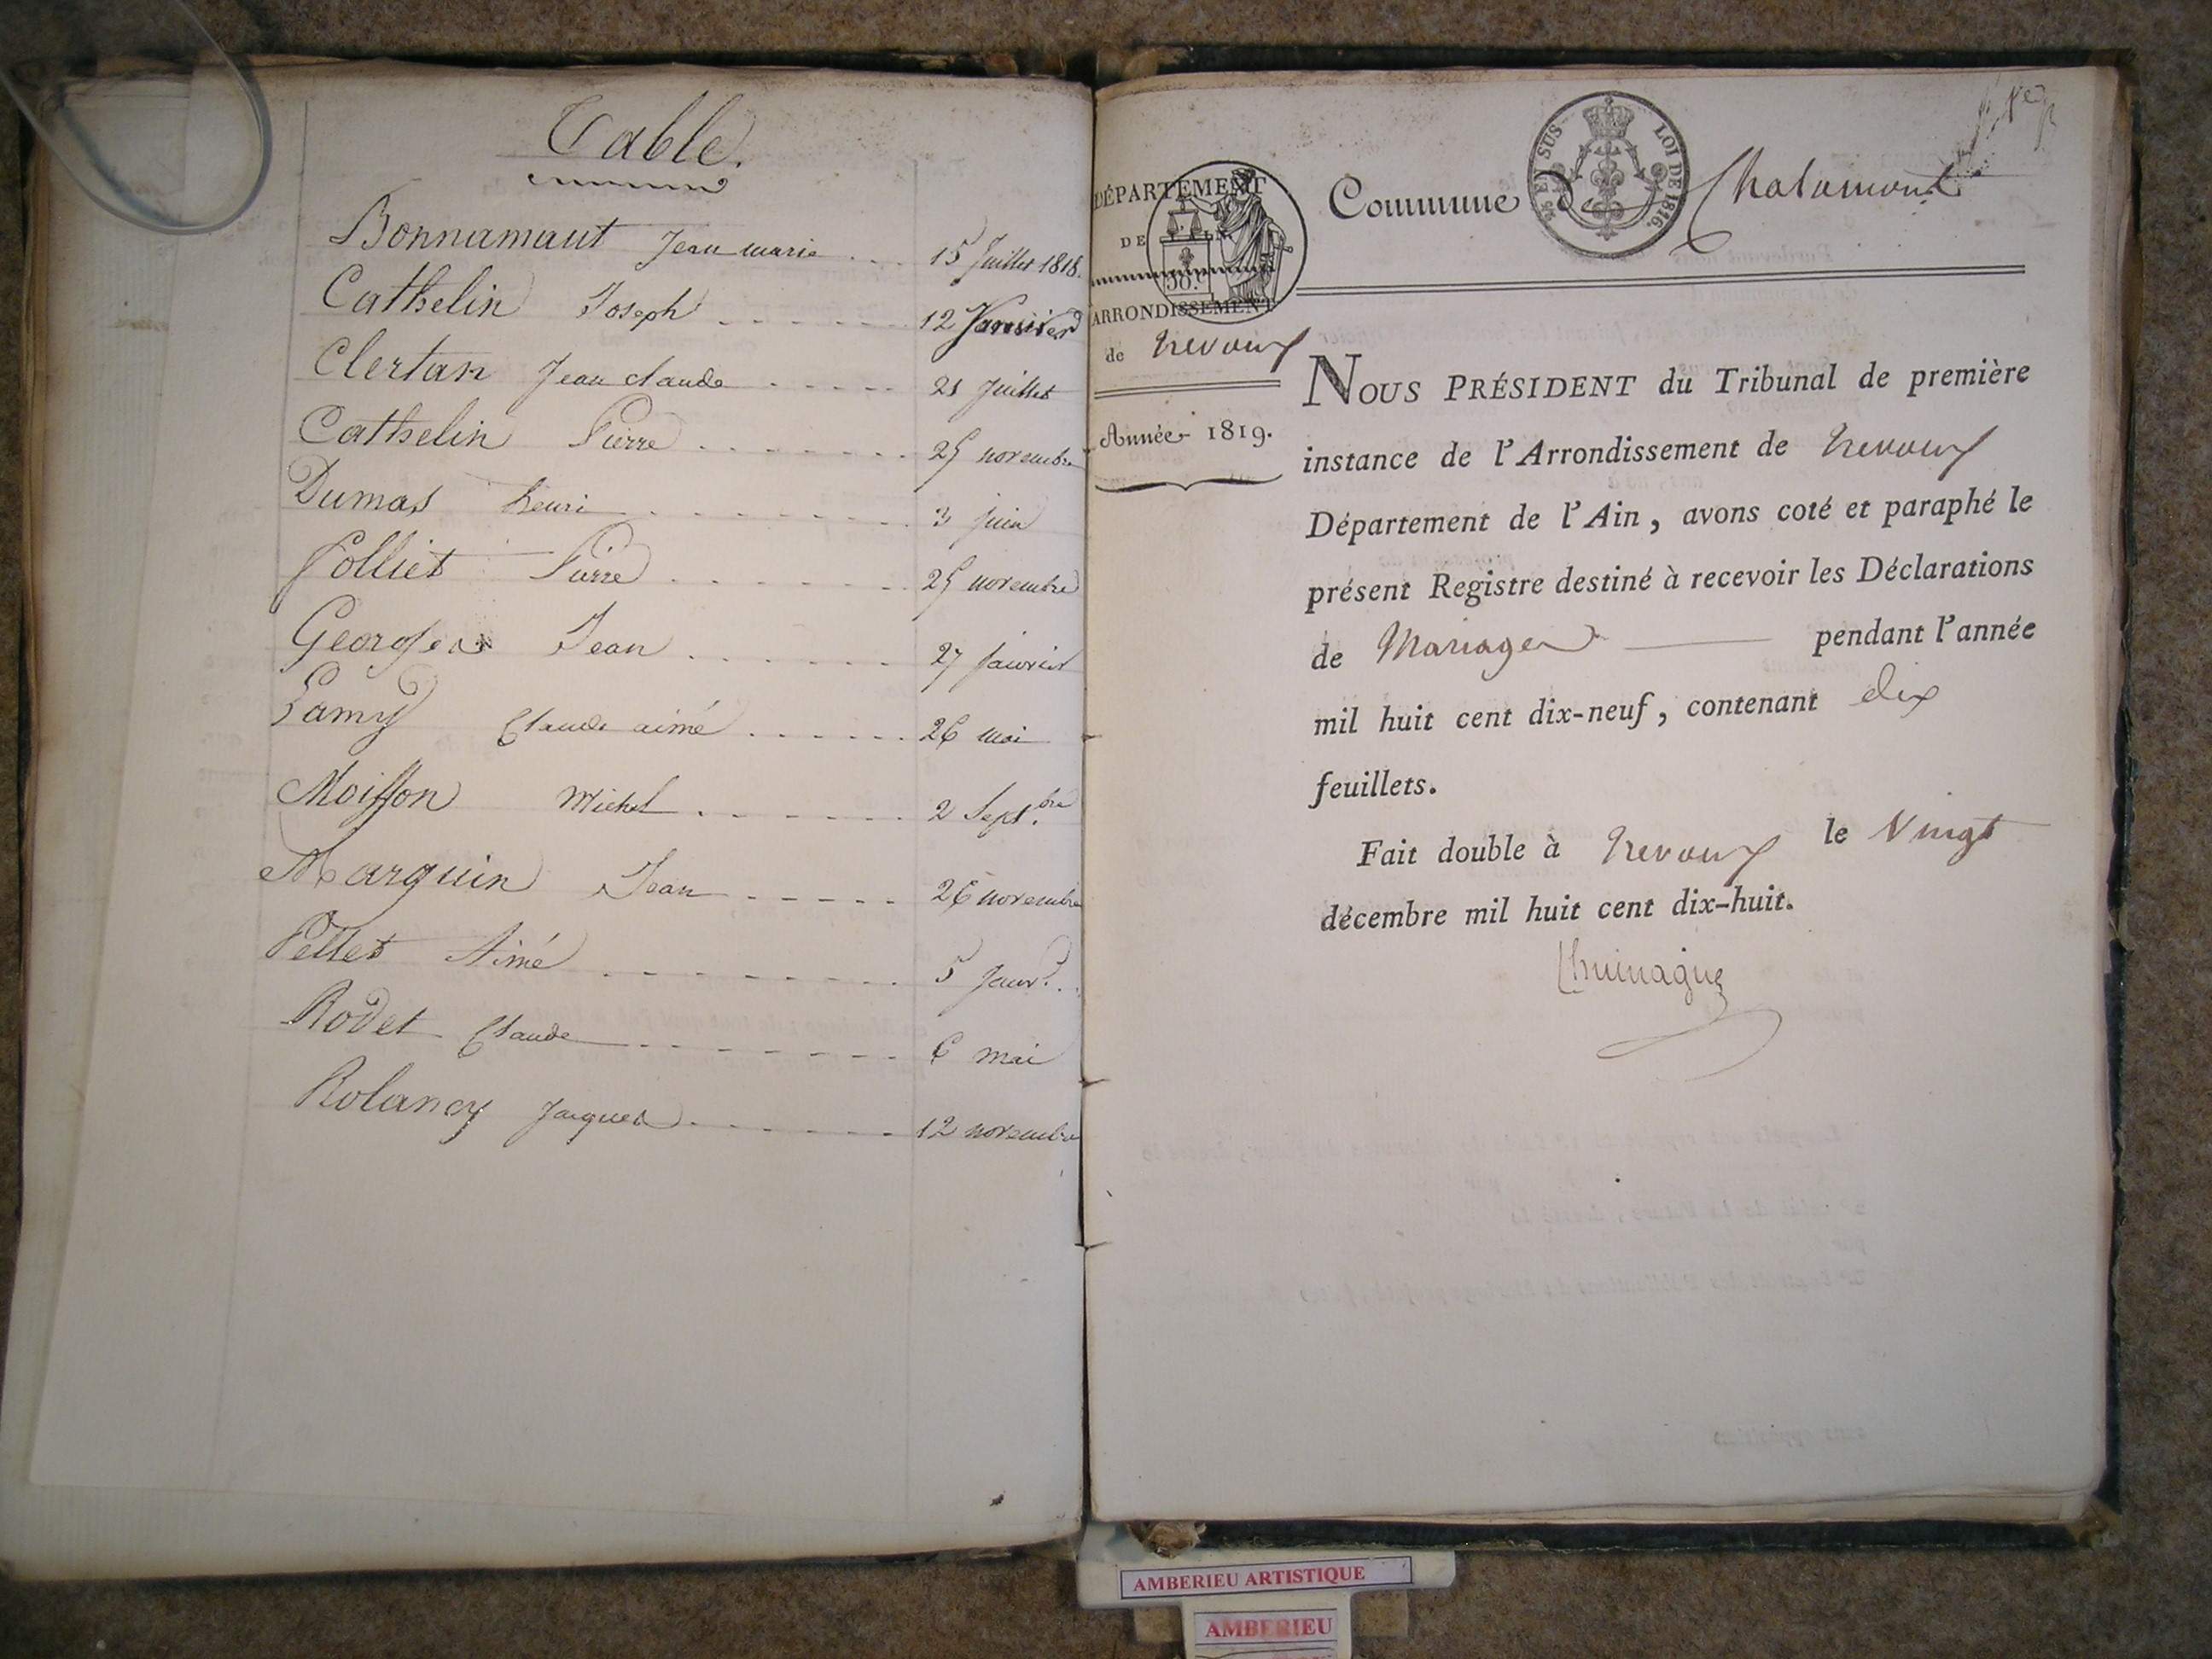 Table.
Bonnamaut Jean marie 15 Juillet 1818.
Cathelin Joseph 12 Janvier
Clertan Jean claude 21 juillet
Cathelin Pierre 25 novembre
Dumas henri 3 juin
Folliet Pierre 25 novembre
Georges Jean 27 janvier
Lamy Claude aimé 26 mai
Moisson Michel 2 Sept.bre
Marguin Jean 26 novembre
Pellet Aimé 5 Janvr.
Rodet Claude 6 mai
Rolancy Jacques 12 novembre
EN SUS LOI DE 1816.
DÉPARTEMENT
DE L'AIN
50.c
ARRONDISSEMENT
de Trevoux
Année 1819.
Commune de Chalamont
NOUS PRÉSIDENT du Tribunal de première
instance de l'Arrondissement de Trevoux
Département de l'Ain, avons coté et paraphé le
présent Registre destiné à recevoir les Déclarations
de Mariages pendant l'année
mil huit cent dix-neuf, contenant dix
feuillets.
Fait double à Trevoux le Vingt
décembre mil huit cent dix-huit.
AMBERIEU ARTISTIQUE
AMBERIEU